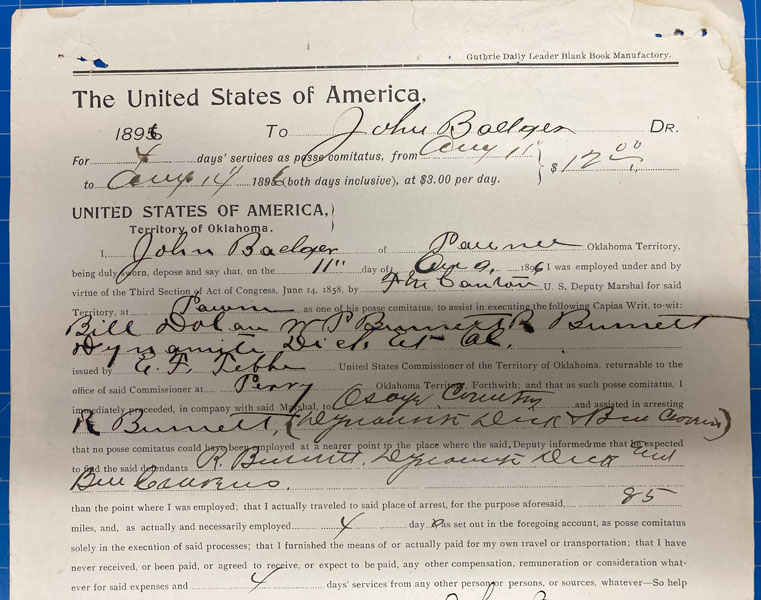 Guthrie Daily Leader Blank Book Manufactory.
The United States of America,
1896 To John Badger Dr.
For 4 days' services as posse comitatus, from Aug 11
$12 00
to Aug 14 1896 (both days inclusive), at $3.00 per day.
UNITED STATES OF AMERICA,
Territory of Oklahoma.
I, John Badger of Pawnee Oklahoma Territory,
being duly sworn, depose and say that, on the 11" day of Aug 1896 I was employed under and by
virtue of the Third Section of Act of Congress, June 14, 1858, by Canton U. S. Deputy Marshal for said
Territory, at Pawn as one of his posse comitatus, to assist in executing the following Capias Writ, to-wit:
Bill Dolan W P Burnett R Burnett
Dynamite Dick et al.
issued by E. F. United States Commissioner of the Territory of Oklahoma, returnable to the
office of said Commissioner at Perry Oklahoma Territory, Forthwith; and that as such posse comitatus, I
immediately proceeded, in company with said Marshal, to Osage Country and assisted in arresting
R Burnett, (Dynamite Dick & Bill)
that no posse comitatus could have been employed at a nearer point to the place where the said, Deputy informed me that he expected
to find the said defendants R. Burnett. Dynamite Dick and
Bill Cravens.
than the point where I was employed; that I actually traveled to said place of arrest, for the purpose aforesaid, 85
miles, and, as actually and necessarily employed 4 day as set out in the foregoing account, as posse comitatus
solely in the execution of said processes; that I furnished the means of or actually paid for my own travel or transportation; that I have
never received, or been paid, or agreed to receive, or expect to be paid, any other compensation, remuneration or consideration what-
ever for said expenses and 4 days' services from any other person or persons, or sources, whatever—So help